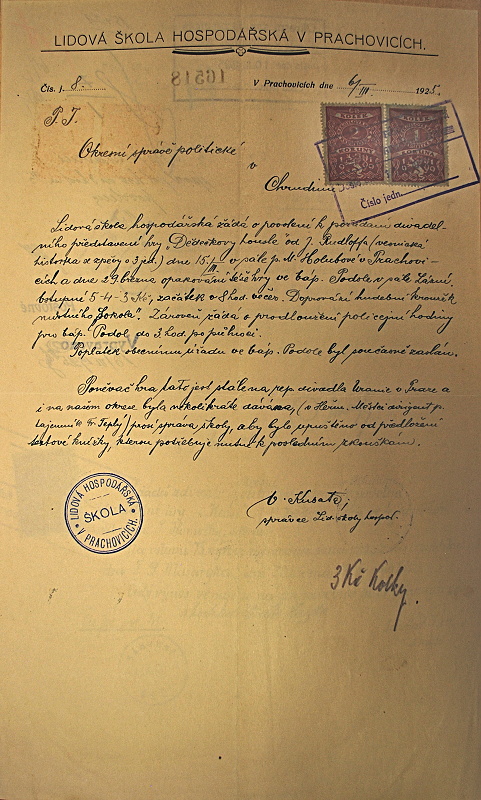 LIDOVÁ ŠKOLA HOSPODÁŘSKÁ V PRACHOVICÍCH.
Čís. j. 8. V Prachovicích dne 6/III 1925.
16518
P. T.
Okresní správě politické
v
Chrudimi
KOLEK KOLEK
2 1
KORUNY KORUNA
Číslo jedn.
Lidová škola hospodářská žádá o povolení k pořádání divadel-
ního představení hry „Dědečkovy housle" od J. Rudloffa (vesnická
historka se zpěvy o 3 jed.) dne 15./III v sále p. M. Holubové v Prachovi-
cích a dne 29. března opakování téže hry ve Váp. Podole v sále Lázní,
vstupné 5-4-3 Kč, začátek v 8 hod. večer. Doprovází hudební kroužek
místního „Sokola". Zároveň žádá o prodloužení policejní hodiny
pro Váp. Podol, do 3 hod. po půlnoci.
Poplatek obecnímu úřadu ve Váp. Podole byl současně zaslán.
Poněvač hra tato jest stále na rep. divadla Uranie v Praze a
i na našem okrese byla několikráte dávána, (v Heřm. Městci dirigent p.
tajemník Fr. Teplý) prosí správa školy, aby bylo upuštěno od předložení
textové knížky, kterou potřebuje nutně k posledním zkouškám.
LIDOVÁ HOSPODÁŘSKÁ
ŠKOLA
V PRACHOVICÍCH.
správce Lid. školy hospod.
3 Kč Kolky.